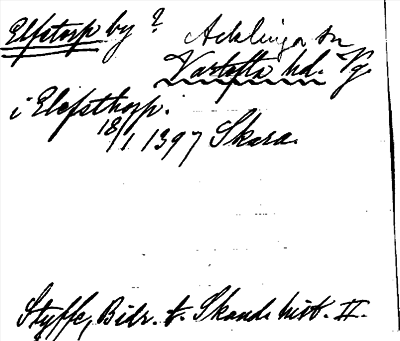 Elfstorp by? Acklinga sn
Vartofta hd. Vg.
i Elefsthorp.
18/1 1397 Skara.
Styffe, Bidr. t. Skand. hist. II.